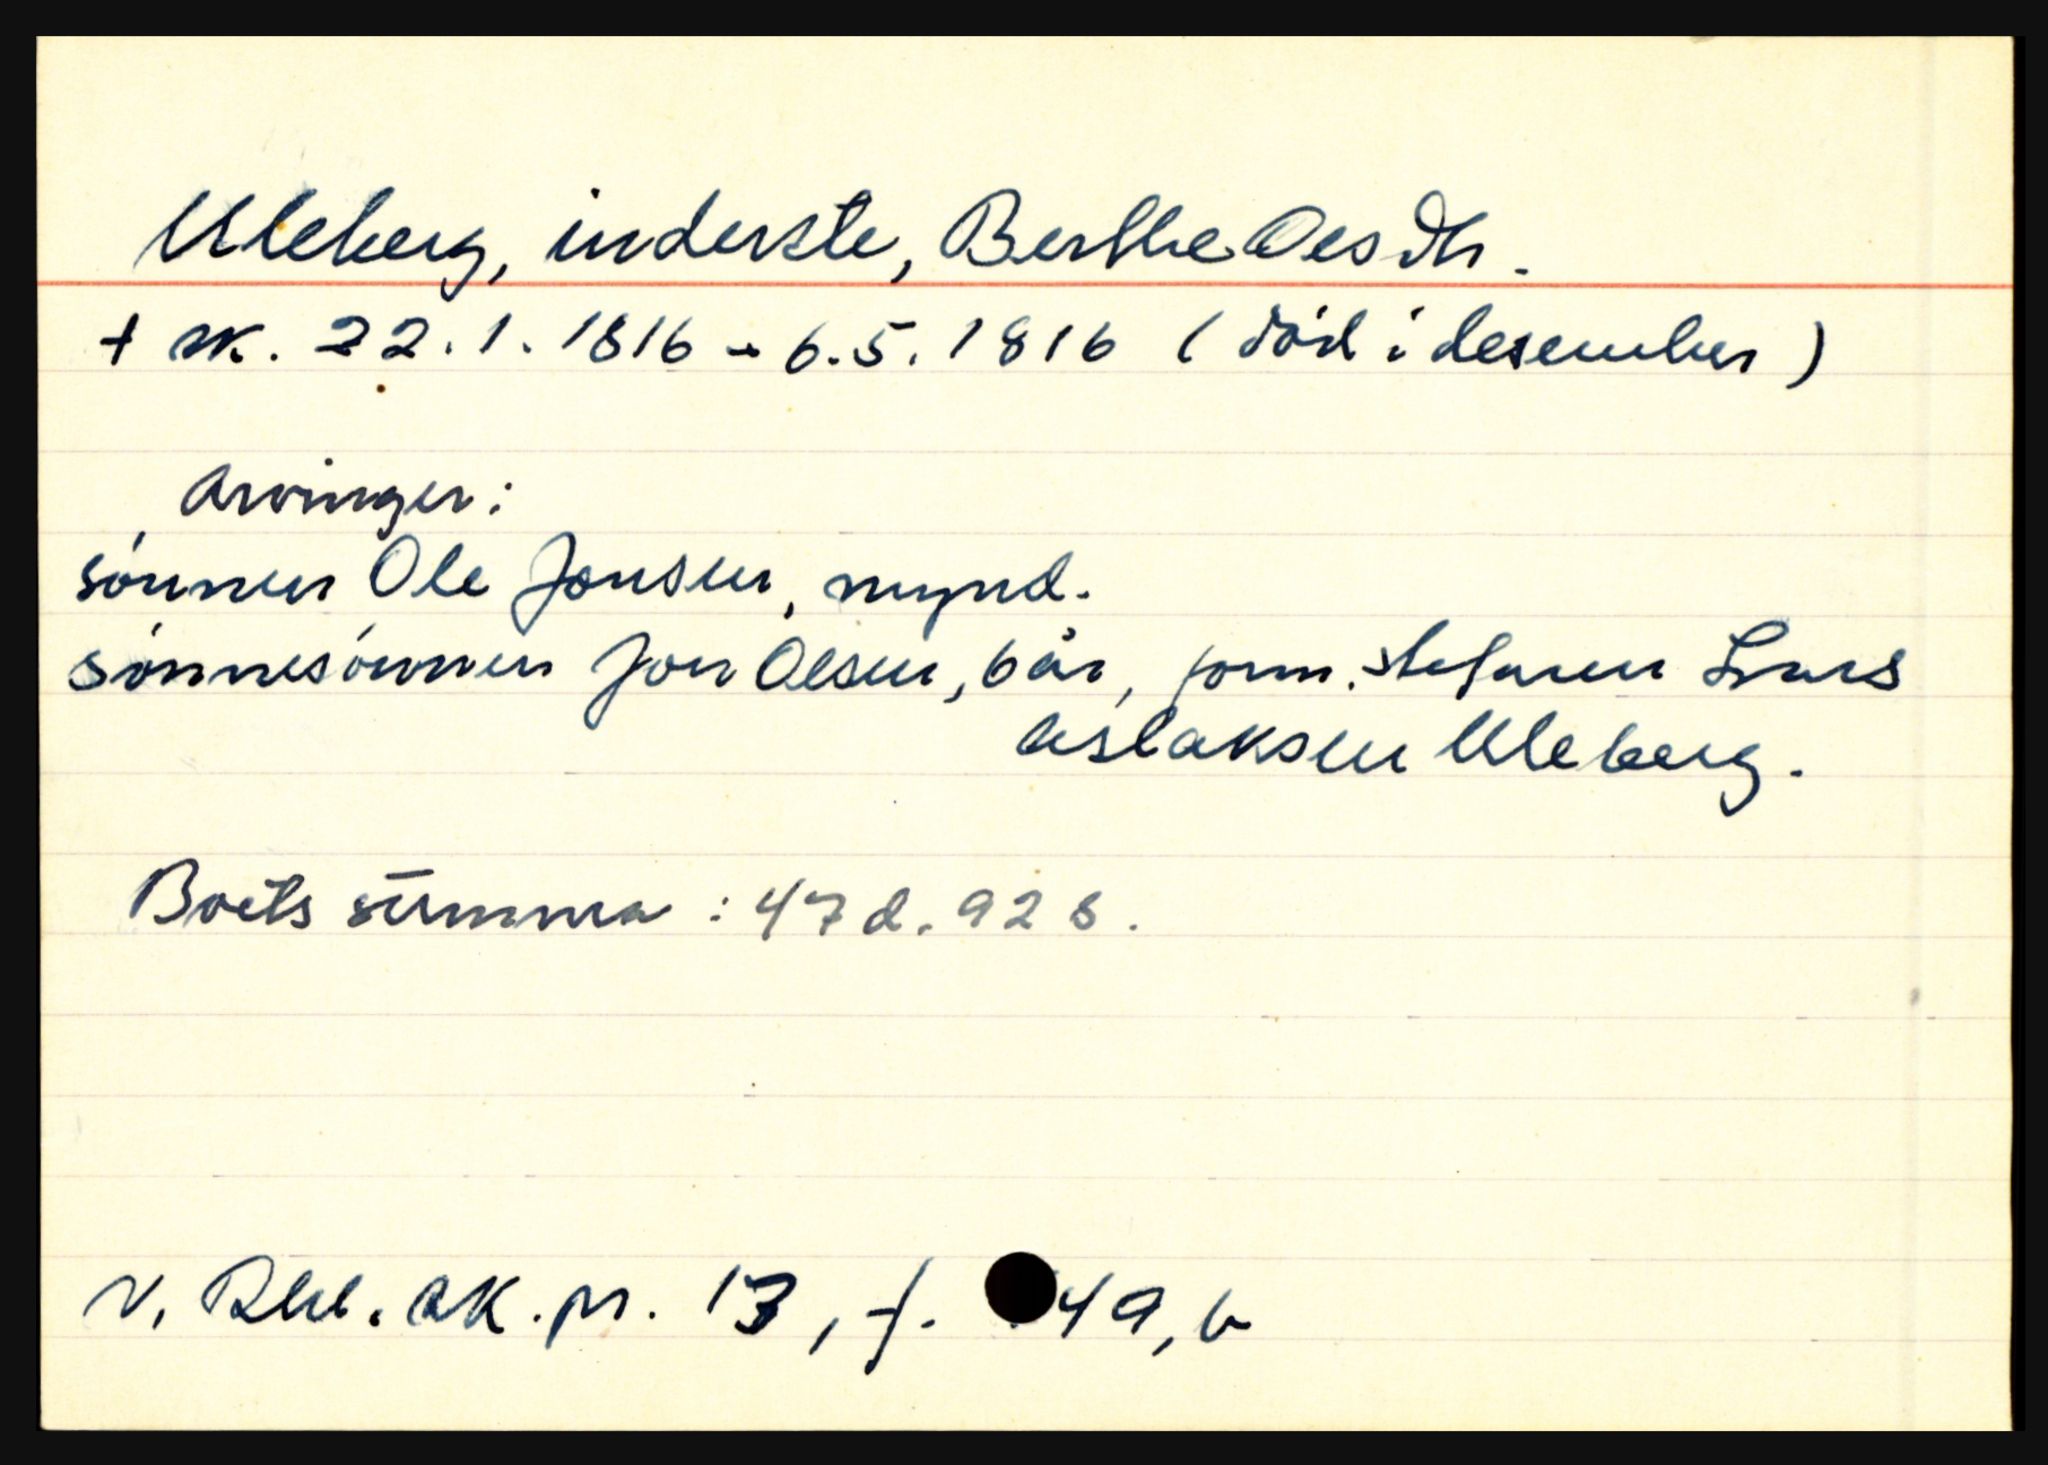 Uleberg, inderste, Berthe Olsdtr.
+ sk. 22.1.1816 - 6.5.1816 (död i desember)
Arvinger:
sönnen Ole Jonsen, mynd.
sönnesönnen Jon Olsen, 6 år, form. stefaren Lars
Aslaksen Uleberg.
Boets summa: 47 d. 92 s.
V. Rbd. sk.pr. 13, f. 49, b